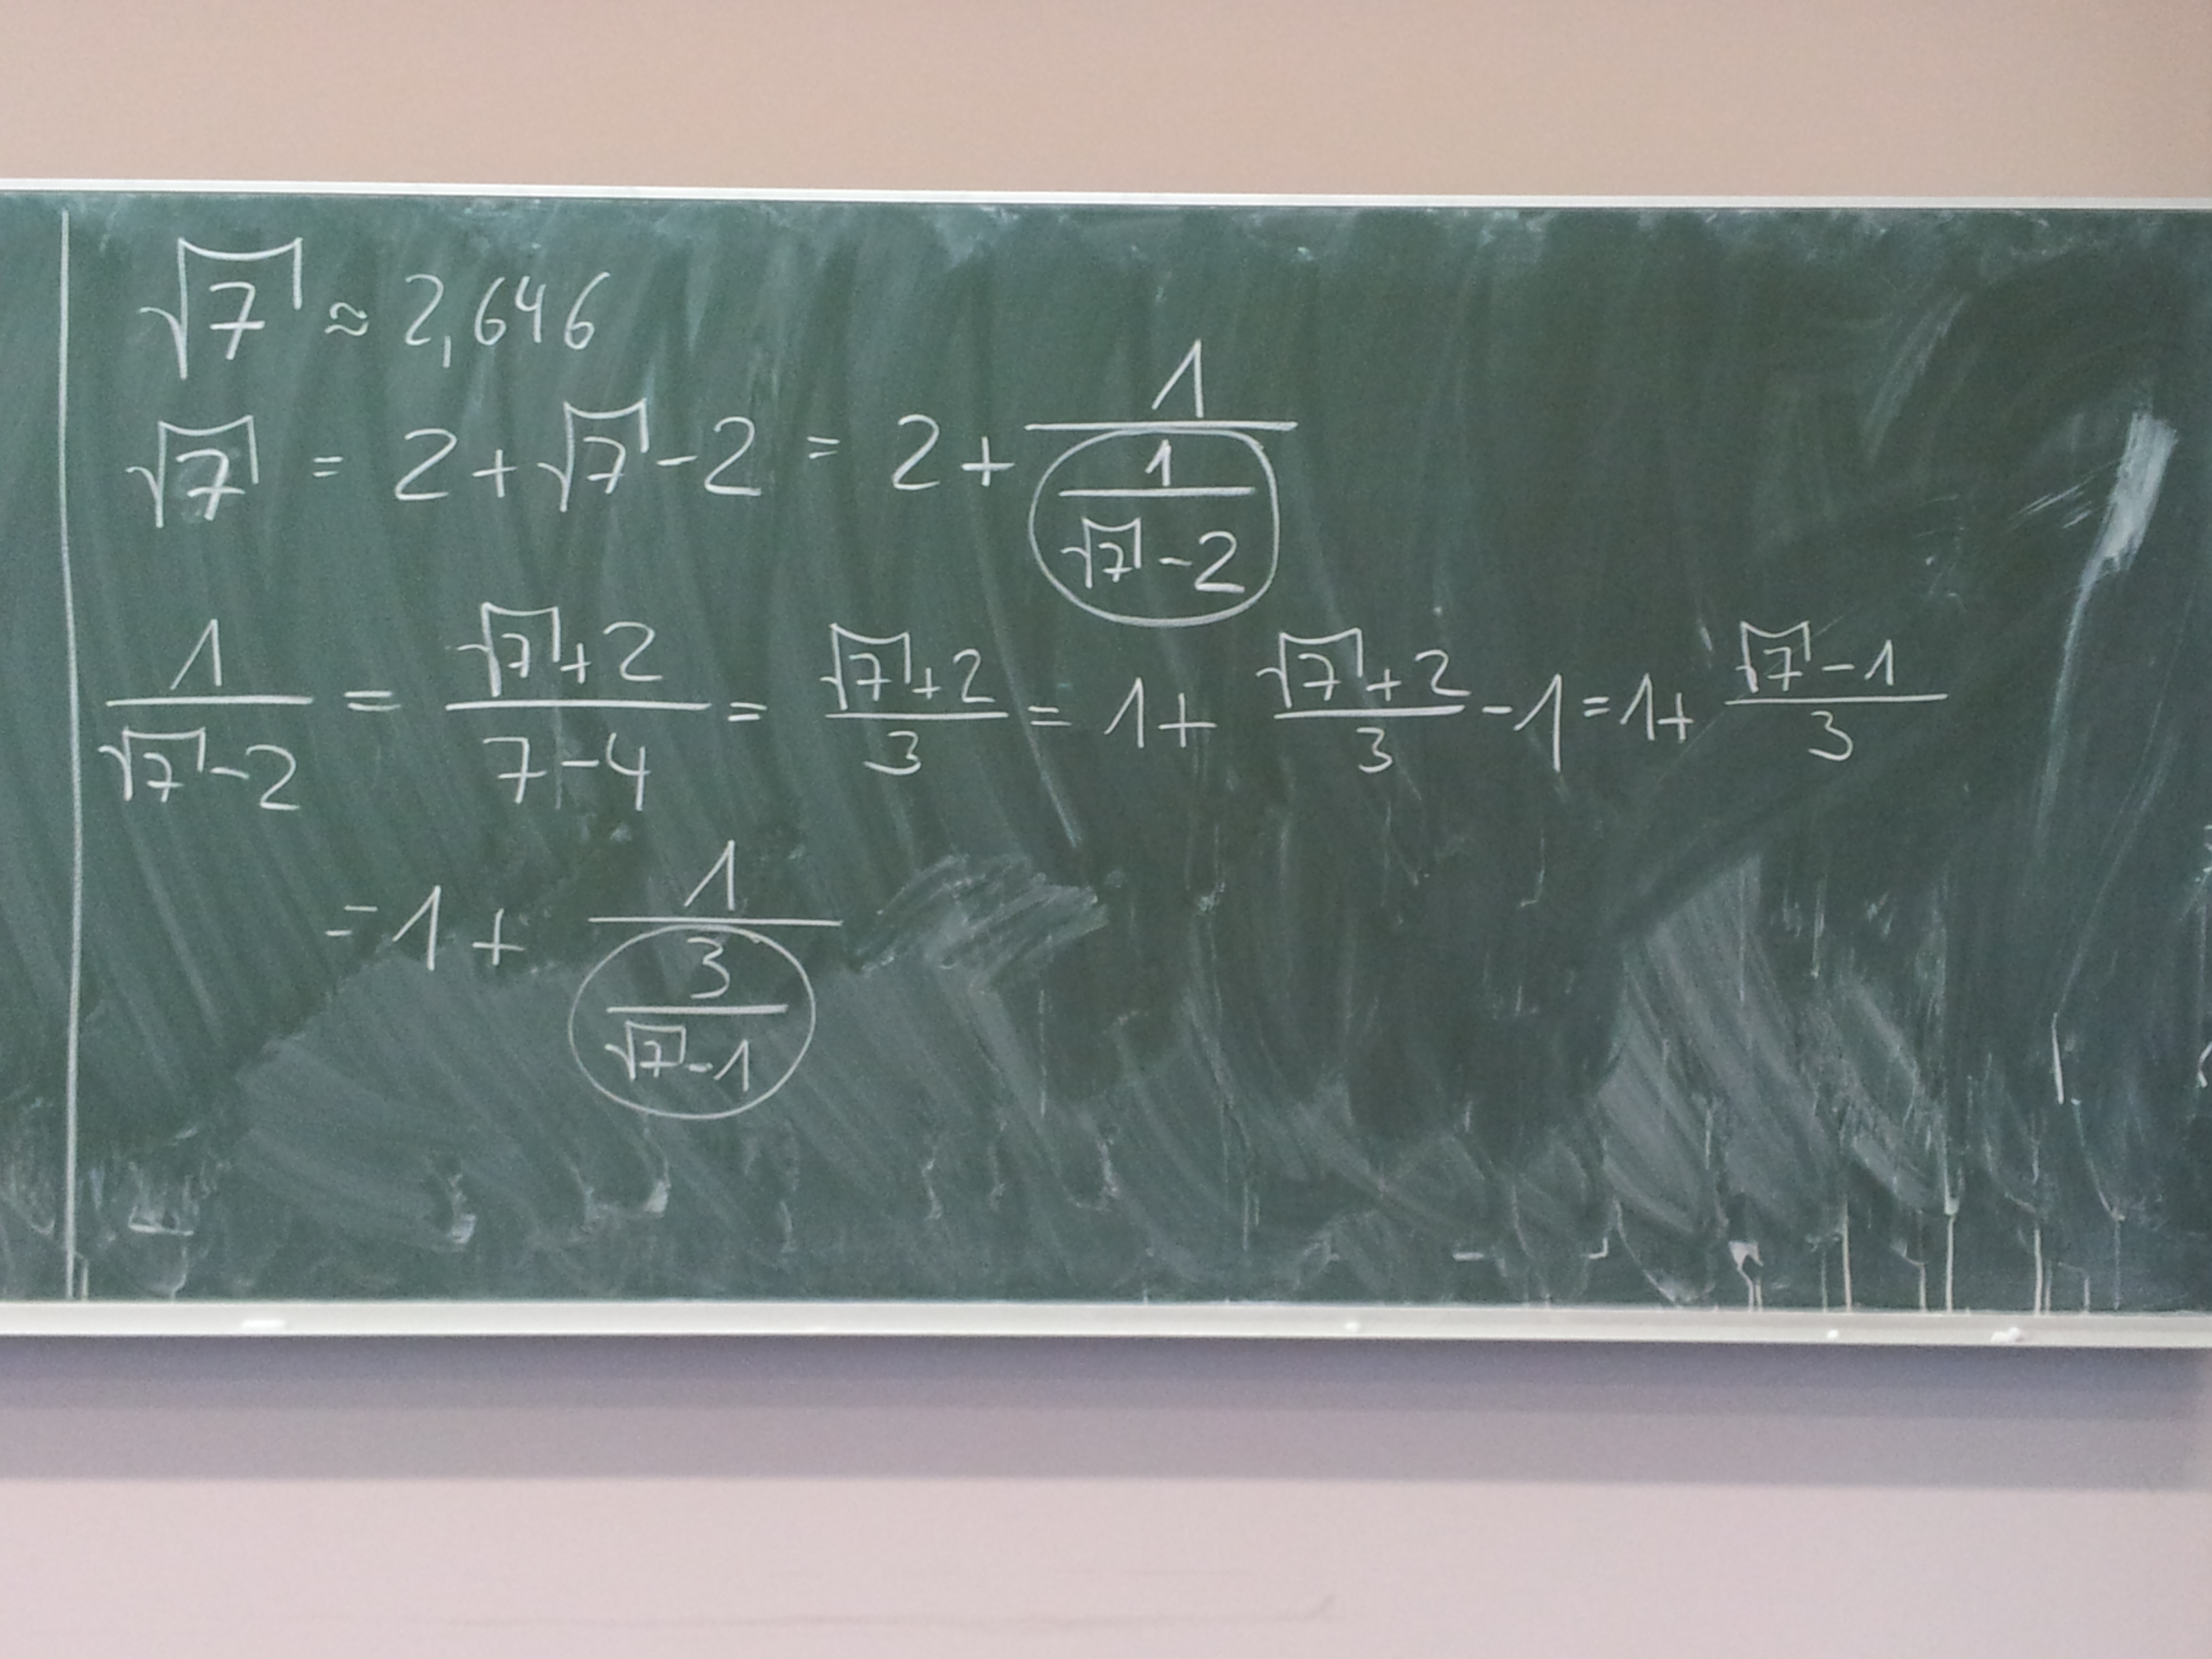 √7 ≈ 2,646
√7 = 2 + √7 - 2 = 2 + 1/(1/(√7 - 2))
1/(√7 - 2) = (√7 + 2)/(7 - 4) = (√7 + 2)/3 = 1 + (√7 + 2)/3 - 1 = 1 + (√7 - 1)/3
= 1 + 1/(3/(√7 - 1))